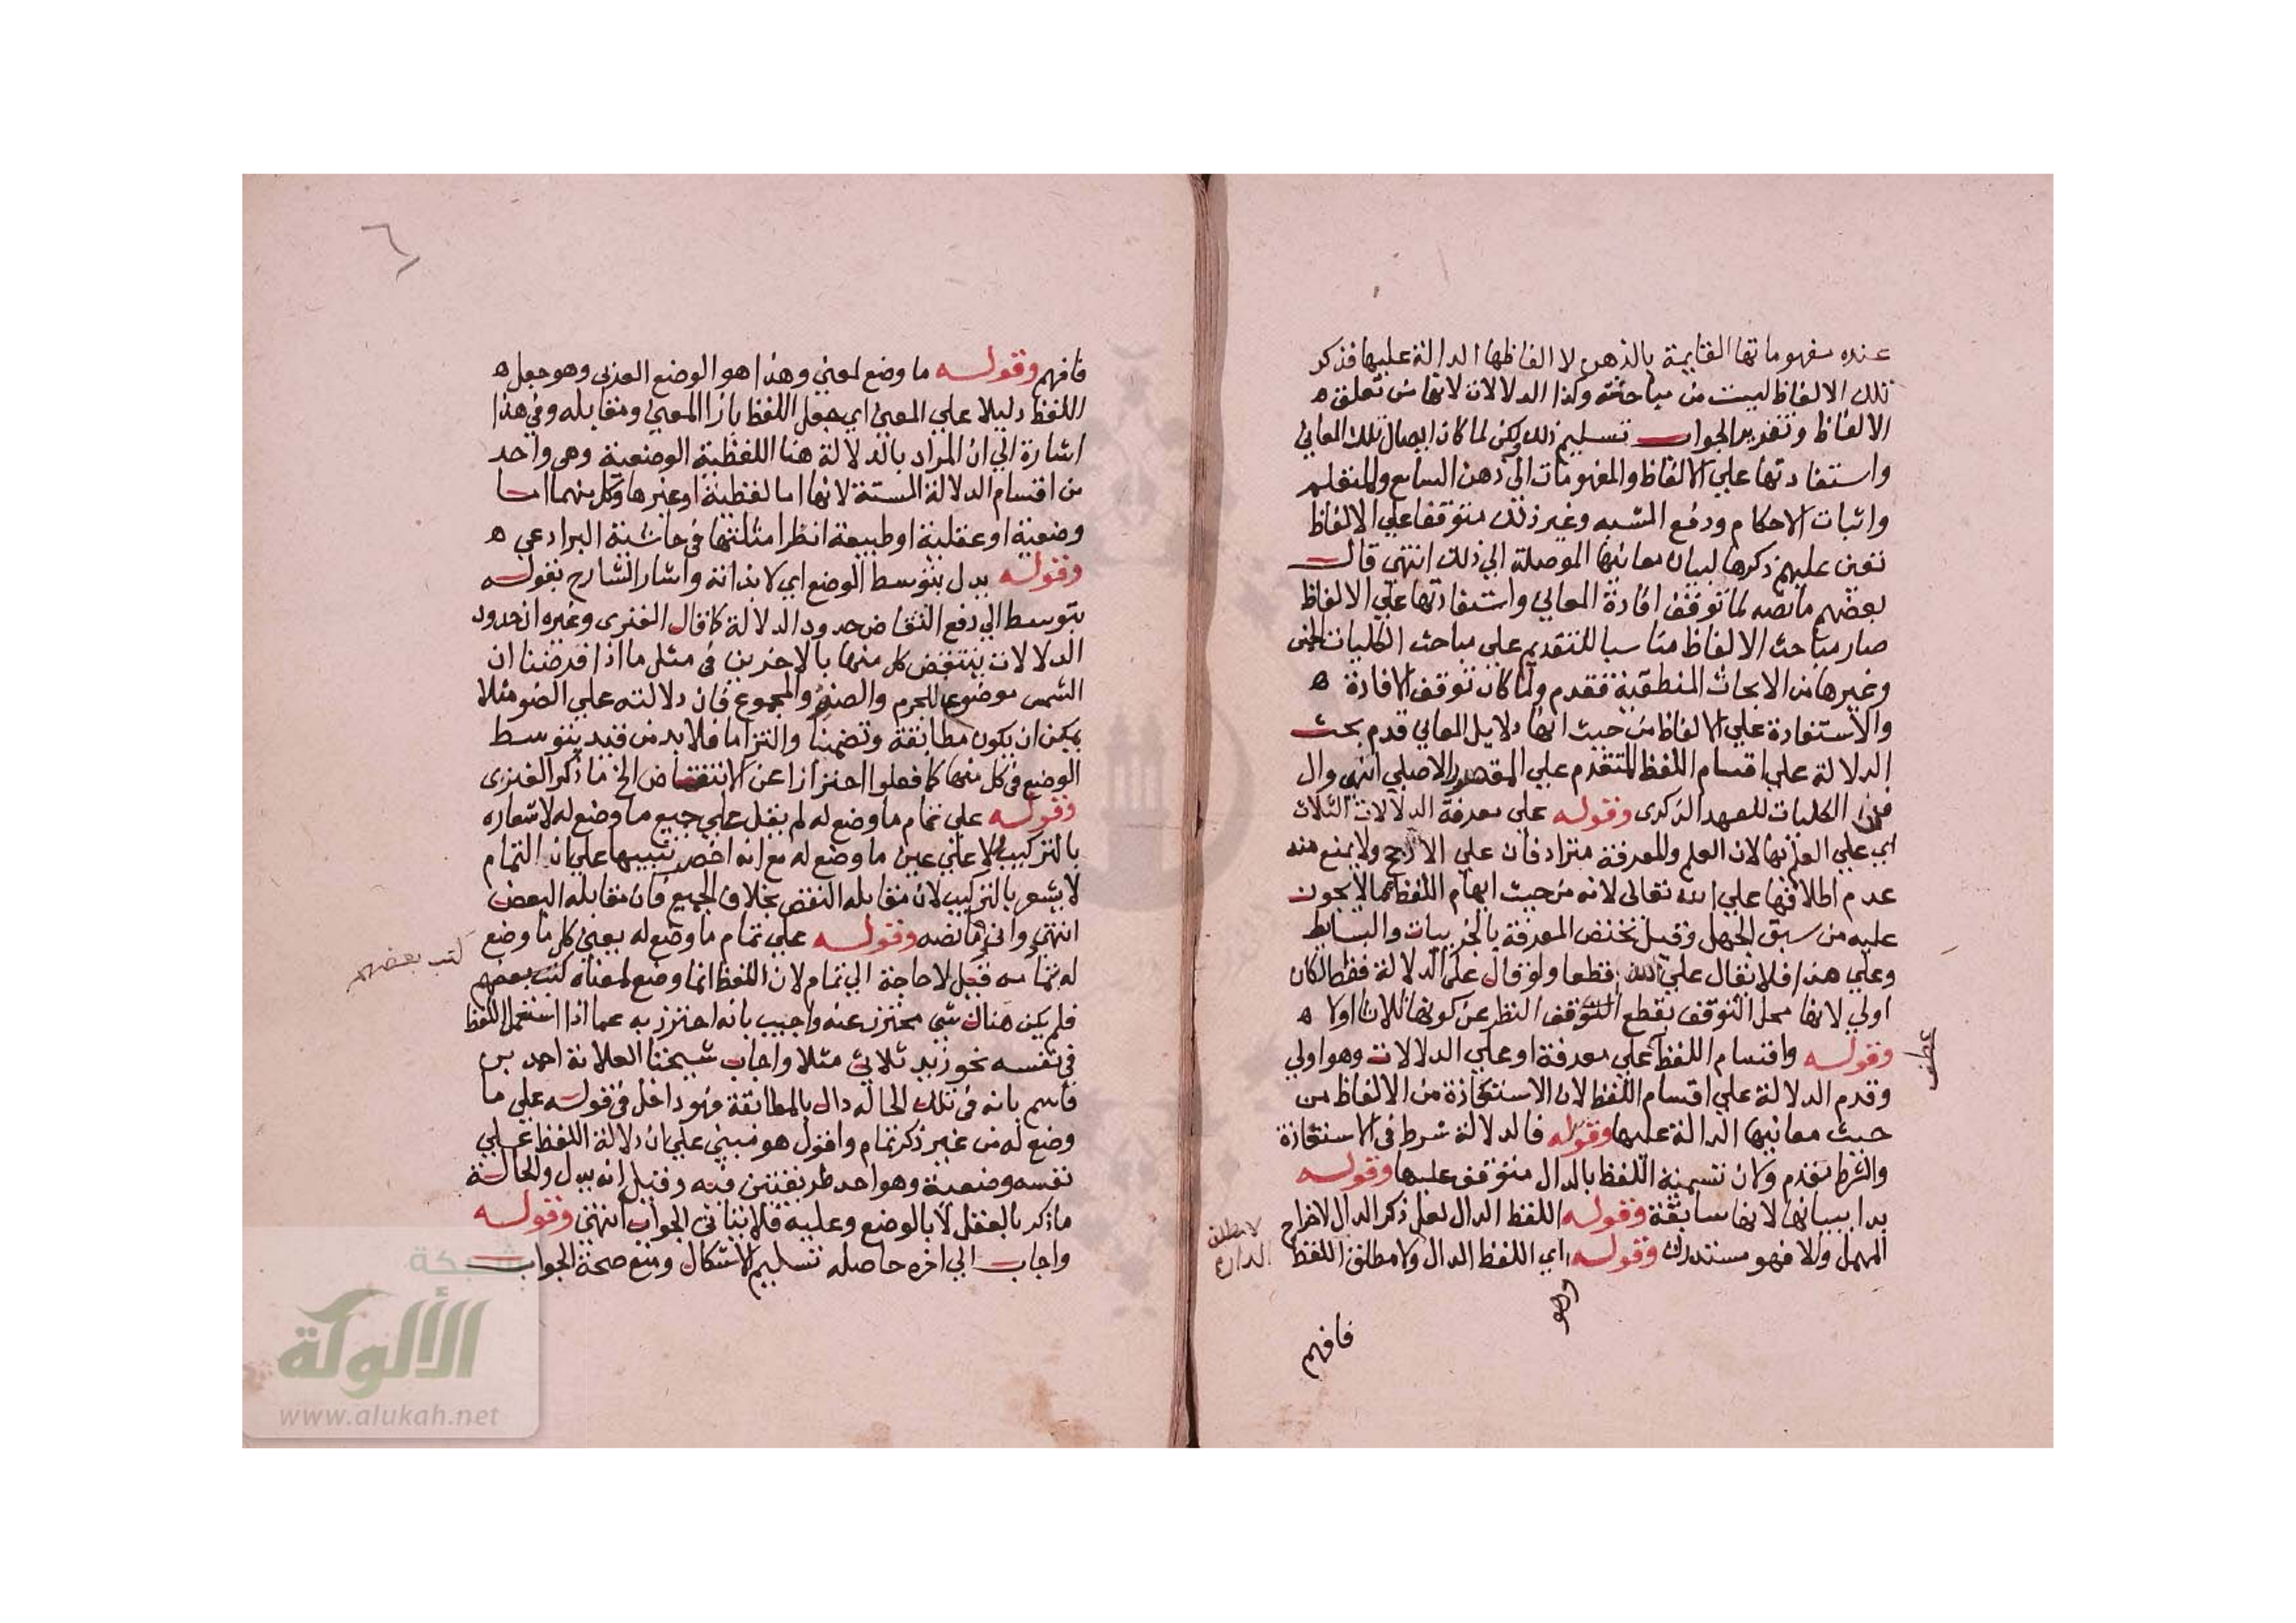 عنده مفهوماتها القايمة بالذهن لا الفاظها الدالة عليها فذكر
تلك الالفاظ ليست من مباحثه وكذا الدلالات لانها من تعلق ه
الالفاظ وتقدير الجواب تسليم ذلك ولكن لما كان ايصال تلك المعاني
واستفادتها علي الالفاظ والمفهومات الي ذهن السامع والمتعلم
واثبات الاحكام ودفع الشبه وغير ذلك متوقفا علي الالفاظ
تعين عليهم ذكرها لبيان معانيها الموصلة الي ذلك انتهي قال
بعضهم ما نصه لما توقف افادة المعاني واستفادتها علي الالفاظ
صار مباحث الالفاظ مناسبا للتقديم علي مباحث الكليات الخمس
وغيرها من الابحاث المنطقية فقدم ولما كان توقف الافادة ه
والاستفادة علي الالفاظ من حيث انها دلايل المعاني قدم بحث
الدلالة علي اقسام اللفظ المتقدم علي المقصود الاصلي انتهي وال
في الكليات للعهد الذكري وقوله علي معرفة الدلالات الثلاث
اي علي العلم بها لان العلم والمعرفة مترادفان علي الارجح ولا يمنع منه
عدم اطلاقها علي الله تعالى لانه من حيث ابهام اللفظ مما لا يجوز
عليه من سبق الجهل وقيل تختص المعرفة بالجزييات والبسايط
وعلي هذا فلا يقال علي الله قطعا ولو قال علي الدلالة فقط لكان
اولي لانها محل التوقف بقطع النظر عن كونها ثلاثا اولا ه
وقوله واقسام اللفظ علي معرفة او علي الدلالات وهو اولي
عطف
وقدم الدلالة علي اقسام اللفظ لان الاستفادة من الالفاظ من
حيث معانيها الدالة عليها وقوله فالدلالة شرط في الاستفادة
والشرط مقدم وكان تسمية اللفظ بالدال متوقف عليها وقوله
بدا ببيانها لانها سابقة وقوله اللفظ الدال لعل ذكر الدال لاخراج
المهمل والا فهو مستدرك وقوله اي اللفظ الدال ولا مطلق اللفظ
لا مطلق
وهو
فافهم
٦
فافهم وقوله ما وضع لمعني وهذا هو الوضع العربي وهو جعل ه
اللفظ دليلا علي المعني اي جعل اللفظ بازا المعني ومقابله وفي هذا
اشارة الي ان المراد بالدلالة هنا اللفظية الوضعية وهي واحد
من اقسام الدلالة الستة لانها اما لفظية او غيرها وكل منهما اما
وضعية او عقلية او طبيعة انظر امثلتها في حاشية البرادعي ه
وقوله يدل بتوسط الوضع اي لا بذاته واشار الشارح بقوله
بتوسط الي دفع انتقاض حدود الدلالة كما قال الفنري وغيره ان حدود
الدلالات ينتقض كل منها بالاخرين في مثل ما اذا فرضنا ان
الشمس موضوع للجرم والضوء والمجموع فان دلالته علي الضوء مثلا
يمكن ان يكون مطابقة وتضمنا والتزاما فلا بد من قيد بتوسط
الوضع في كل منها كما فعلوا احترازا عن الانتقاض الخ ما ذكر الفنري
وقوله علي تمام ما وضع له لم يقل علي جميع ما وضع له لاشعاره
بالتركيب ولا علي عين ما وضع له مع انه اخصر تنبيها علي ان التمام
لا يشعر بالتركيب لان مقابله النقص بخلاف الجميع فان مقابله البعض
انتهي وافهم ما نصه وقوله علي تمام ما وضع له يعني كل ما وضع
كتب بعضهم
له بتمامه قيل لا حاجة الي تمام لان اللفظ انما وضع لمعناه كتب بعضهم
فلم يكن هناك شي محترز عنه واجيب بانه احترز به عما اذا استعمل اللفظ
في نفسه نحو زيد ثلاثي مثلا واجاب شيخنا العلامة احمد بن
قاسم بانه في تلك الحالة دال بالمطابقة وهو داخل في قوله علي ما
وضع له من غير ذكر تمام واقول هو مبني علي ان دلالة اللفظ علي
نفسه وضعية وهو احد طريقتين فيه وقيل انه يدل والحالة
ماذكر بالعقل لا بالوضع وعليه فلا يتاتي الجواب انتهي وقوله
واجاب الي اخره حاصله تسليم الاشكال ومنع صحة الجواب
شبكة
الألوكة
www.alukah.net